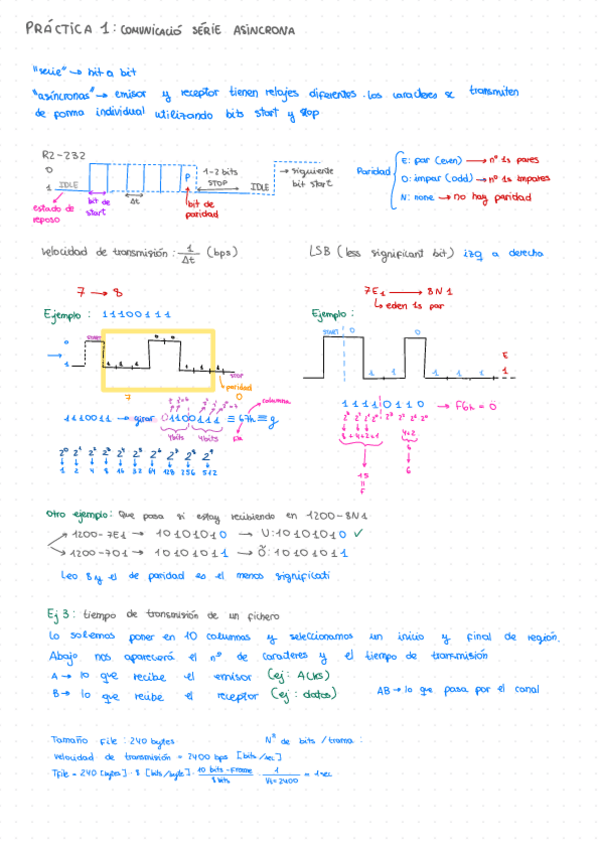 PRÁCTICA 1: COMUNICACIÓ SÉRIE ASÍNCRONA
"serie" → bit a bit
"asíncronas" → emisor y receptor tienen relojes diferentes. Los caracteres se transmiten
de forma individual utilizando bits start y stop
R2-232
0
1
IDLE
P
1-2 bits
STOP
IDLE
→ siguiente
bit start
estado de
reposo
bit de
start
Δt
bit de
paridad
Paridad
E: par (even) → nº 1s pares
O: impar (odd) → nº 1s impares
N: none → no hay paridad
Velocidad de transmisión: 1/Δt (bps)
LSB (less significant bit) izq a derecha
7 → 8
Ejemplo: 11100111
0
1
START
1 1 1 0 0 1 1 1
STOP
paridad
7 0
1110011 → girar 01100111 ≡ 67h ≡ g
4bits 4bits
columna
fila
2⁰ 2¹ 2² 2³ 2⁴ 2⁵ 2⁶ 2⁷ 2⁸ 2⁹
1 2 4 8 16 32 64 128 256 512
7E1 → 8N1
↳ eden 1s par
Ejemplo:
START 0 0
1 1 1 1 1
E
1
11110110 → F6h = ö
2³ 2² 2¹ 2⁰ 2³ 2² 2¹ 2⁰
8+4+2+1 4+2
15 6
F 6
Otro ejemplo: Que pasa si estoy recibiendo en 1200-8N1
1200-7E1 → 10101010 → U: 10101010 ✓
1200-7O1 → 10101011 → Õ: 10101011
Leo 8 y el de paridad es el menos significati
Ej 3: tiempo de transmisión de un fichero
Lo solemos poner en 10 columnas y seleccionamos un inicio y final de región.
Abajo nos aparecerá el nº de caracteres y el tiempo de transmisión
A → lo que recibe el emisor (ej: ACKs)
B → lo que recibe el receptor (ej: datos)
AB → lo que pasa por el canal
Tamaño file: 240 bytes
Nº de bits / trama:
Velocidad de transmisión = 2400 bps [bits/sec]
Tfile = 240 [bytes] · 8 [bits/byte] · 10 bits-frame / 8 bits · 1 / Vt=2400 = 1sec